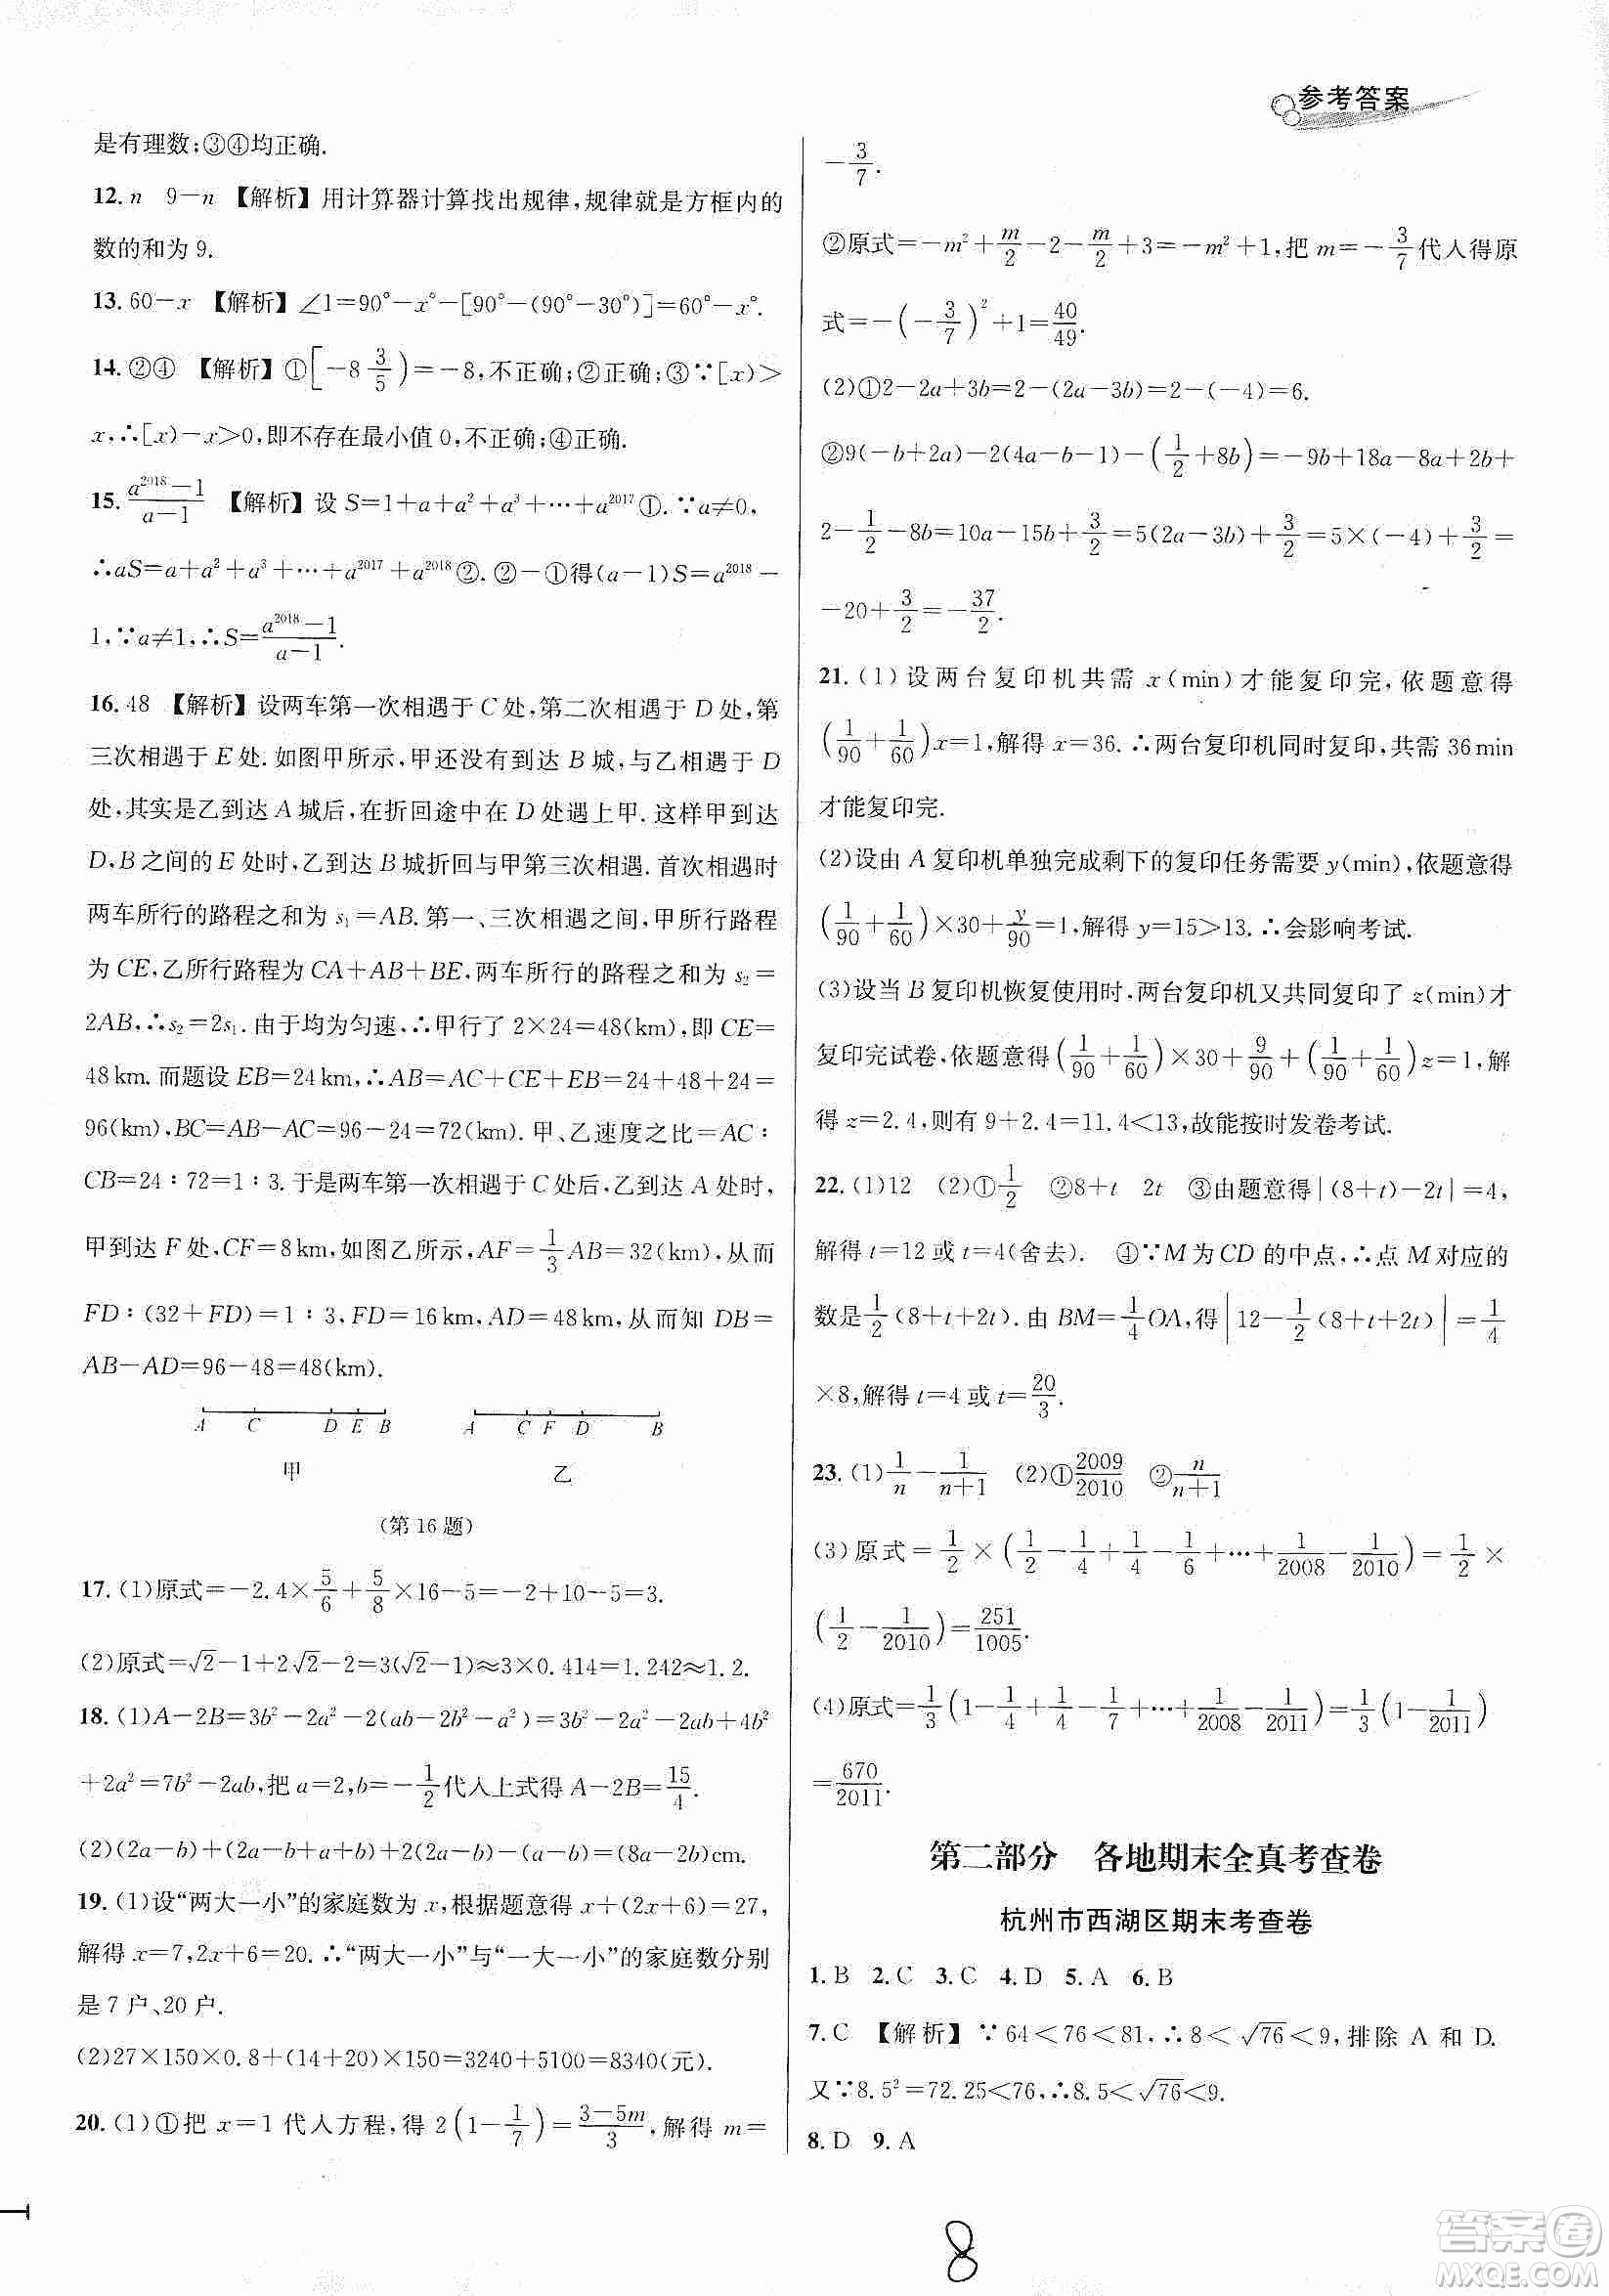 参考答案
是有理数;③④均正确.
12. n 9-n 【解析】用计算器计算找出规律,规律就是方框内的
数的和为 9.
13. 60-x 【解析】∠1=90°-x°-[90°-(90°-30°)]=60°-x°.
14. ②④ 【解析】①[-8 3/5)=-8,不正确;②正确;③∵[x)>
x,∴[x)-x>0,即不存在最小值 0,不正确;④正确.
15. (a^2018-1)/(a-1) 【解析】设 S=1+a+a²+a³+…+a^2017①.∵a≠0,
∴aS=a+a²+a³+…+a^2017+a^2018②.②-①得(a-1)S=a^2018-
1,∵a≠1,∴S=(a^2018-1)/(a-1).
16. 48 【解析】设两车第一次相遇于 C 处,第二次相遇于 D 处,第
三次相遇于 E 处.如图甲所示,甲还没有到达 B 城,与乙相遇于 D
处,其实是乙到达 A 城后,在折回途中在 D 处遇上甲.这样甲到达
D,B 之间的 E 处时,乙到达 B 城折回与甲第三次相遇.首次相遇时
两车所行的路程之和为 s₁=AB.第一、三次相遇之间,甲所行路程
为 CE,乙所行路程为 CA+AB+BE,两车所行的路程之和为 s₂=
2AB,∴s₂=2s₁.由于均为匀速,∴甲行了 2×24=48(km),即 CE=
48 km.而题设 EB=24 km,∴AB=AC+CE+EB=24+48+24=
96(km),BC=AB-AC=96-24=72(km).甲、乙速度之比=AC:
CB=24:72=1:3.于是两车第一次相遇于 C 处后,乙到达 A 处时,
甲到达 F 处,CF=8 km,如图乙所示,AF=1/3 AB=32(km),从而
FD:(32+FD)=1:3,FD=16 km,AD=48 km,从而知 DB=
AB-AD=96-48=48(km).
A C D E B A C F D B
甲 乙
(第 16 题)
17. (1)原式=-2.4×5/6+5/8×16-5=-2+10-5=3.
(2)原式=√2-1+2√2-2=3(√2-1)≈3×0.414=1.242≈1.2.
18. (1)A-2B=3b²-2a²-2(ab-2b²-a²)=3b²-2a²-2ab+4b²
+2a²=7b²-2ab,把 a=2,b=-1/2代人上式得 A-2B=15/4.
(2)(2a-b)+(2a-b+a+b)+2(2a-b+a+b)=(8a-2b)cm.
19. (1)设“两大一小”的家庭数为 x,根据题意得 x+(2x+6)=27,
解得 x=7,2x+6=20.∴“两大一小”与“一大一小”的家庭数分别
是 7 户、20 户.
(2)27×150×0.8+(14+20)×150=3240+5100=8340(元).
20. (1)①把 x=1 代人方程,得 2(1-1/7)=(3-5m)/3,解得 m=
-3/7.
②原式=-m²+m/2-2-m/2+3=-m²+1,把 m=-3/7代人得原
式=-(-3/7)²+1=40/49.
(2)①2-2a+3b=2-(2a-3b)=2-(-4)=6.
②9(-b+2a)-2(4a-b-1)-(1/2+8b)=-9b+18a-8a+2b+
2-1/2-8b=10a-15b+3/2=5(2a-3b)+3/2=5×(-4)+3/2=
-20+3/2=-37/2.
21. (1)设两台复印机共需 x(min)才能复印完,依题意得
(1/90+1/60)x=1,解得 x=36.∴两台复印机同时复印,共需 36 min
才能复印完.
(2)设由 A 复印机单独完成剩下的复印任务需要 y(min),依题意得
(1/90+1/60)×30+y/90=1,解得 y=15>13.∴会影响考试.
(3)设当 B 复印机恢复使用时,两台复印机又共同复印了 z(min)才
复印完试卷,依题意得(1/90+1/60)×30+9/90+(1/90+1/60)z=1,解
得 z=2.4,则有 9+2.4=11.4<13,故能按时发卷考试.
22. (1)12 (2)①1/2 ②8+t 2t ③由题意得|(8+t)-2t|=4,
解得 t=12 或 t=4(舍去). ④∵M 为 CD 的中点,∴点 M 对应的
数是1/2(8+t+2t).由 BM=1/4 OA,得|12-1/2(8+t+2t)|=1/4
×8,解得 t=4 或 t=20/3.
23. (1)1/n-1/(n+1) (2)①2009/2010 ②n/(n+1)
(3)原式=1/2×(1/2-1/4+1/4-1/6+…+1/2008-1/2010)=1/2×
(1/2-1/2010)=251/1005.
(4)原式=1/3(1-1/4+1/4-1/7+…+1/2008-1/2011)=1/3(1-1/2011)
=670/2011.
第二部分 各地期末全真考查卷
杭州市西湖区期末考查卷
1. B 2. C 3. C 4. D 5. A 6. B
7. C 【解析】∵64<76<81,∴8<√76<9,排除 A 和 D.
又∵8.5²=72.25<76,∴8.5<√76<9.
8. D 9. A
8
答案圈
MXQE.COM